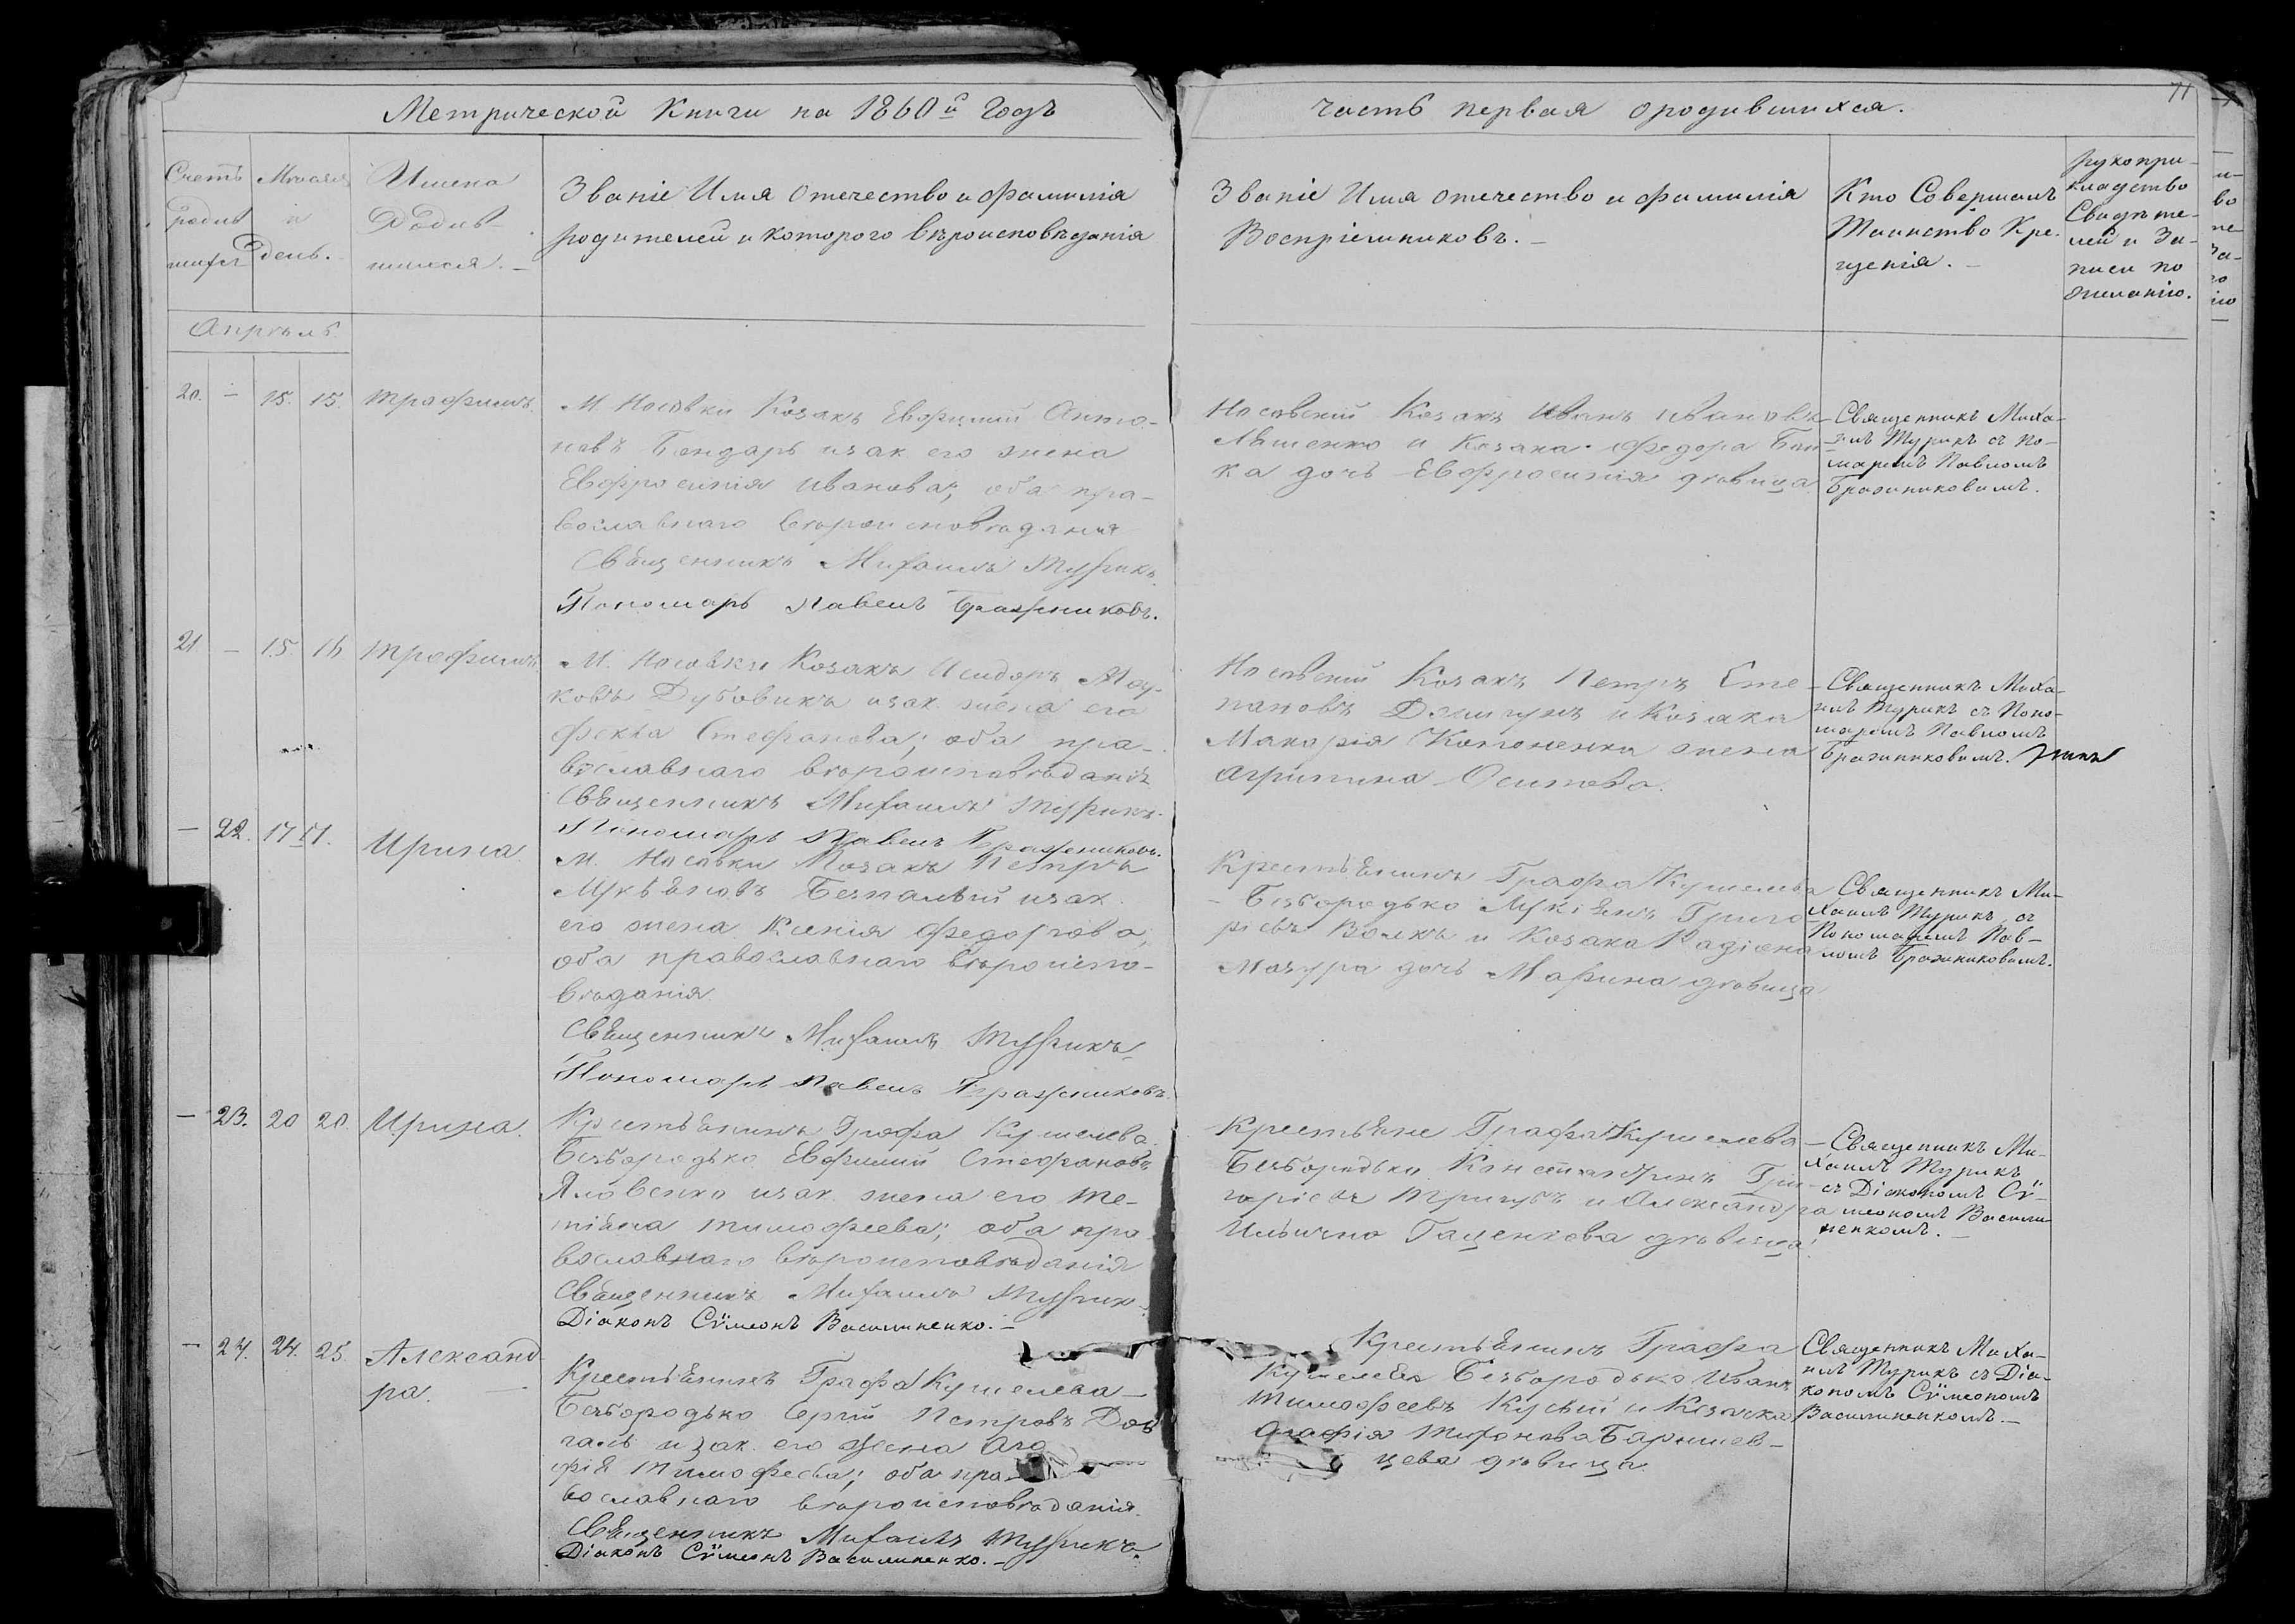 Метрической Книги на 1860й Годъ
часть первая ородившихся.
71
Счетъ родившихся
Месяцъ и день.
Имена Родившихся. —
Званіе Имя отечество и фамилія
родителей и которого вѣроисповѣданія
Званіе Имя отечество и фамилія
Воспріемниковъ. —
Кто Совершалъ
Таинство Кре-
щенія. —
рукопри-
кладство
Свидѣте-
лей и За-
писи по
желанію.
Апрѣль
20. — 15. 15. Трофимъ.
М. Носовки Козакъ Евфимий Анто-
новъ Бондарь изак его жена
Евфросинія Иванова; оба пра-
вославнаго вѣроисповѣданія
Священникъ Михаилъ Турикъ.
Пономарь Павелъ Бражниковъ.
Носовский Козакъ Иванъ Ивановъ
Ляшенко и Козака Федора
ка дочь Евфросинія дѣвица
Священникъ Миха-
илъ Турикъ съ По-
маремъ Павломъ
Бражниковымъ.
21. — 15. 16 Трофимъ
М. Носовки Козакъ Исидоръ
ковъ Дубовикъ изак. жена его
Фекла Стефанова; оба пра-
вославнаго вѣроисповѣданія
Священникъ Михаилъ Турикъ.
Пономарь Павелъ Бражниковъ.
Носовский Козакъ Петръ Сте-
пановъ и Козака
Макарія Кононенка жена
Агрипина Осипова.
Священникъ Миха-
илъ Турикъ съ Поно-
маремъ Павломъ
Бражниковымъ.
— 22. 17 17. Ирина
М. Носовки Козакъ Петръ
Лукьяновъ Безпалый изак.
его жена Ксенія Федорова,
оба православнаго вѣроиспо-
вѣданія
Священникъ Михаилъ Турикъ
Пономарь Павелъ Бражниковъ
Крестьянинъ Графа Кушелева
Безбородько Лукіянъ Григо-
ріевъ Волкъ и Козака Радіона
Мазура дочь Марина дѣвица
Священникъ Ми-
хаилъ Турикъ съ
Пономаремъ Пав-
ломъ Бражниковымъ.
— 23. 20 20. Ирина.
Крестьянинъ Графа Кушелева
Безбородько Евфимий Стефановъ
Яловенко изак. жена его Те-
тіяна Тимофеева; оба пра-
вославнаго вѣроисповѣданія
Священникъ Михаилъ Турикъ
Діаконъ Сѵмеонъ Василиненко. —
Крестьяне Графа Кушелева —
Безбородьки Константинъ Гри-
горіевъ и Александра
Ильична Гащенкова дѣвица
Священникъ Ми-
хаилъ Турикъ
съ Діакономъ Сѵ-
меономъ Васили-
ненкомъ. —
— 24. 24. 25 Александ-
ра.
Крестьянинъ Графа Кушелева —
Безбородько Сергій Петровъ Дов
галь и зак. его жена Ага
фія Тимофеева; оба пра-
вославнаго вѣроисповѣданія.
Священникъ Михаилъ Турикъ.
Діаконъ Сѵмеонъ Василиненко. —
Крестьянинъ Графа
Кушелева Безбородько Иванъ
Тимофеевъ Кусый и Козачка
Агафія
цева дѣвица
Священникъ Миха-
илъ Турикъ съ Діа-
кономъ Сѵмеономъ
Василиненкомъ. —